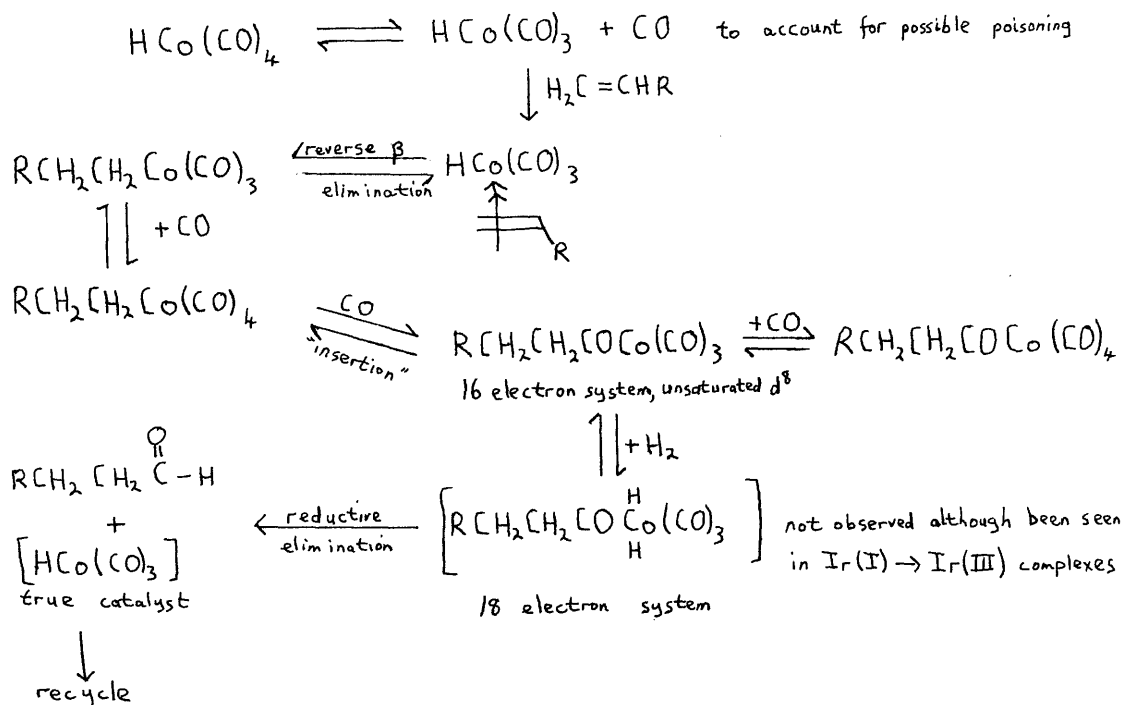 HCo(CO)₄ ⇌ HCo(CO)₃ + CO to account for possible poisoning
↓ H₂C=CHR
RCH₂CH₂Co(CO)₃ reverse β elimination HCo(CO)₃
R
+CO
RCH₂CH₂Co(CO)₄ CO "insertion" RCH₂CH₂COCo(CO)₃ +CO RCH₂CH₂COCo(CO)₄
16 electron system, unsaturated d⁸
+H₂
O
RCH₂CH₂C-H
+
[HCo(CO)₃]
true catalyst
↓
recycle
reductive
elimination
H
[RCH₂CH₂COCo(CO)₃]
H
18 electron system
not observed although been seen
in Ir(I) → Ir(III) complexes